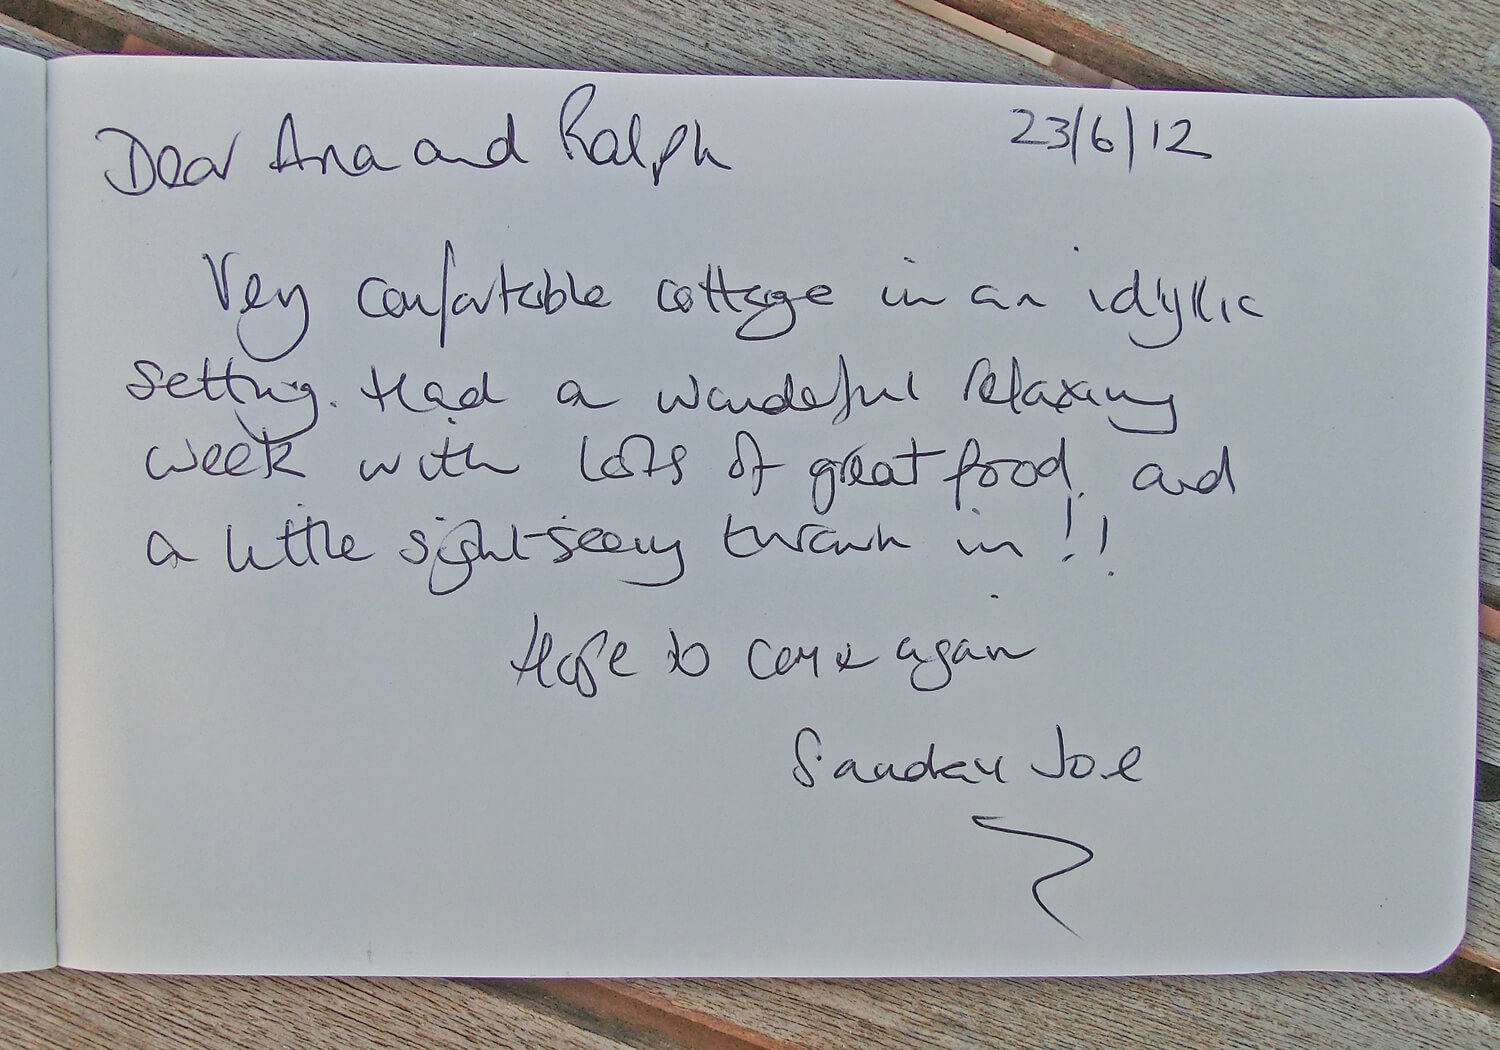 Dear Ana and Ralph 23/6/12
Very comfortable cottage in an idyllic
setting. Had a wonderful relaxing
week with lots of great food, and
a little sight-seeing thrown in!!
Hope to come again
Joe